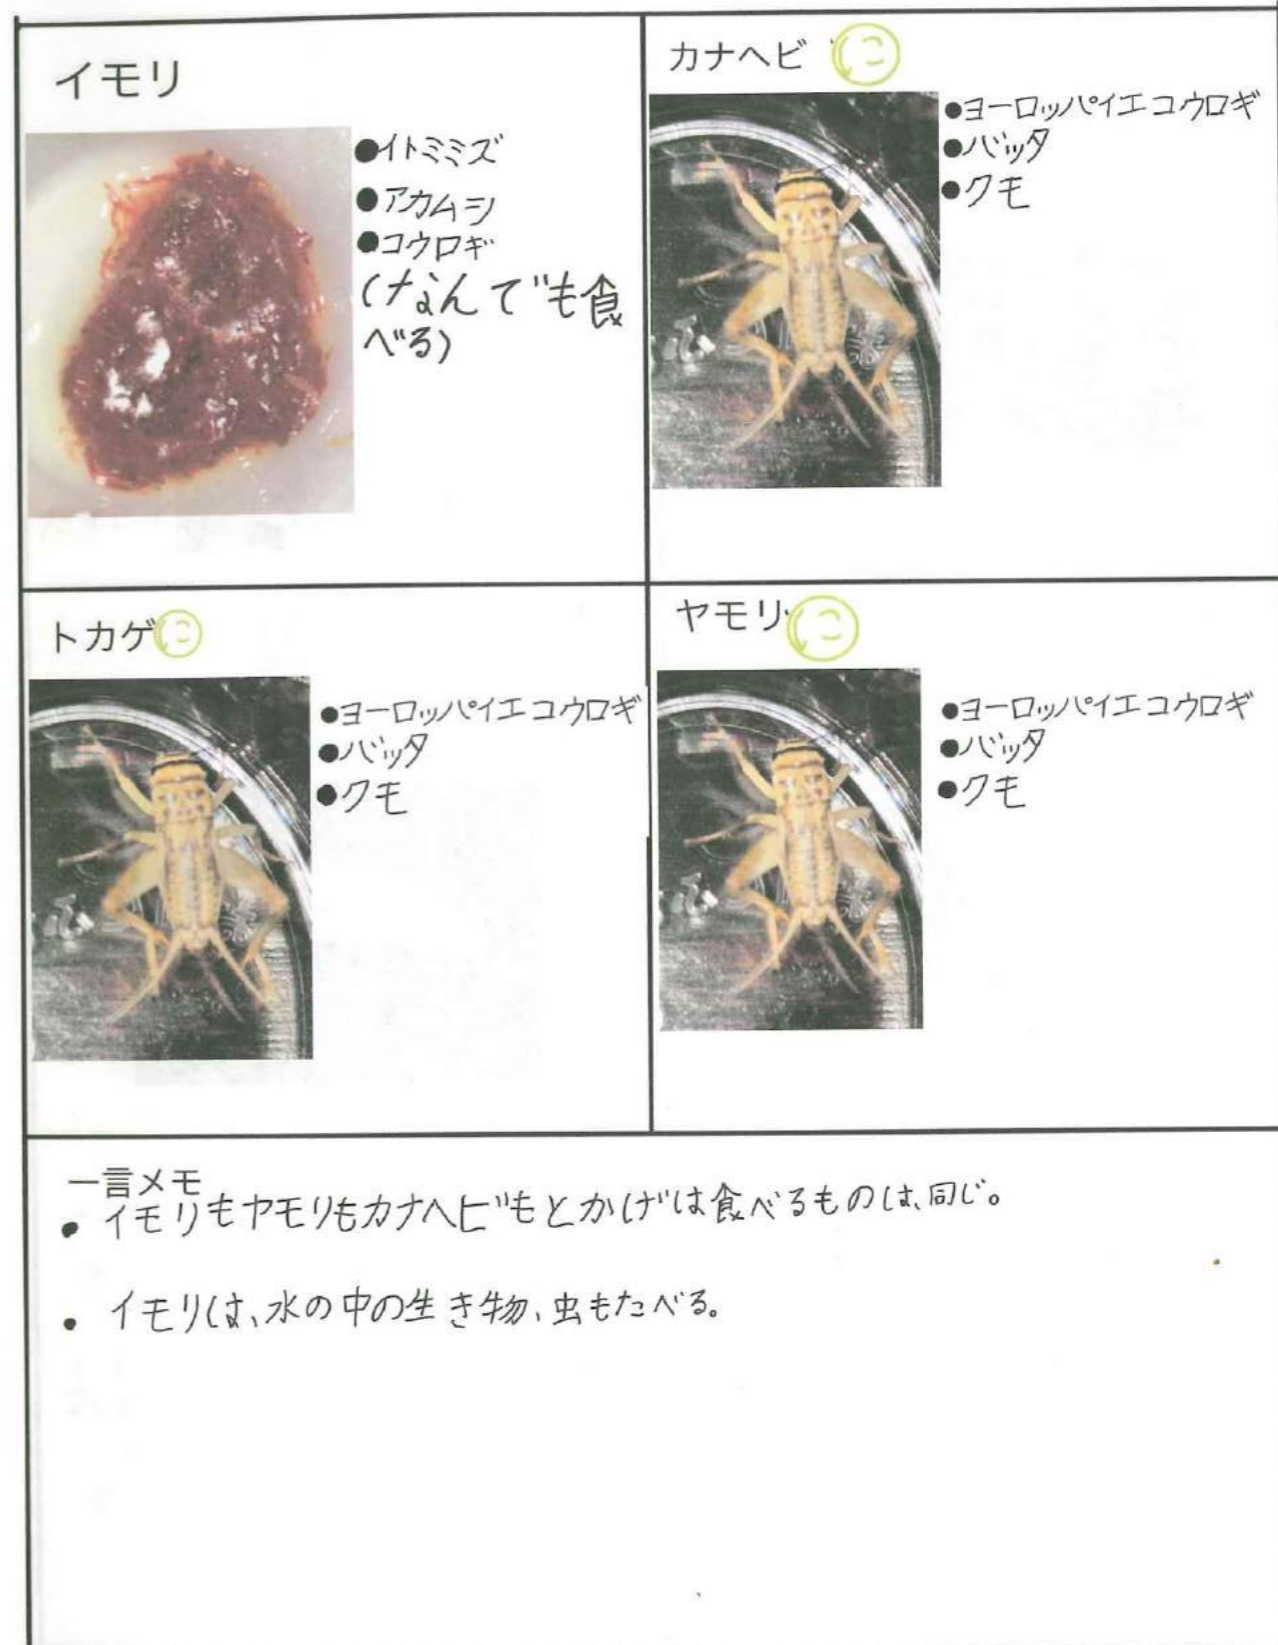 イモリ
●イトミミズ
●アカムシ
●コウロギ
(なんでも食
べる)
カナヘビ
●ヨーロッパイエコウロギ
●バッタ
●クモ
トカゲ
●ヨーロッパイエコウロギ
●バッタ
●クモ
ヤモリ
●ヨーロッパイエコウロギ
●バッタ
●クモ
一言メモ
・イモリもヤモリもカナヘビもとかげは食べるものは、同じ。
・イモリは、水の中の生き物、虫もたべる。